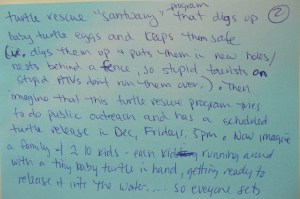 program ②
turtle rescue "santuary" that digs up
baby turtle eggs and keeps them safe
(i.e, digs them up + puts them in new holes/
nests behind a fence, so stupid tourists on
stupid ATVs dont run them over.). Then
imagine that this turtle rescue program tries
to do public outreach and has a scheduled
turtle release in Dec, Fridays, 5pm. Now imagine
a family of 2 10 kids - each kid running around
with a tiny baby turtle in hand, getting ready to
release it into the water..... so everyone gets